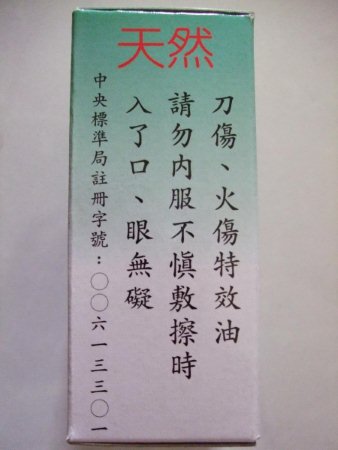 天然
刀傷、火傷特效油
請勿內服不慎敷擦時
入了口、眼無礙
中央標準局註冊字號：〇〇六一三三〇一